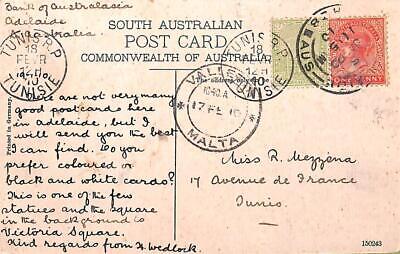 Bank of Australasia
Adelaide
Australia
SOUTH AUSTRALIAN
POST CARD
COMMONWEALTH OF AUSTRALIA
TUNIS R.P.
18
FEVR
TUNISIE
TUNIS R.P.
18
12H
10
TUNISIE
VALLETTA
17 FE 10
MALTA
PENNY
There are not very many
good postcards here
in adelaide, but I
will send you the best
I can find. Do you
prefer coloured or
black and white cards?
This is one of the few
statues and the square
in the background is
Victoria Square.
Kind regards from H. Wedlock.
Printed in Germany.
Miss R. Mezzena
17 Avenue de France
Tunis.
150243